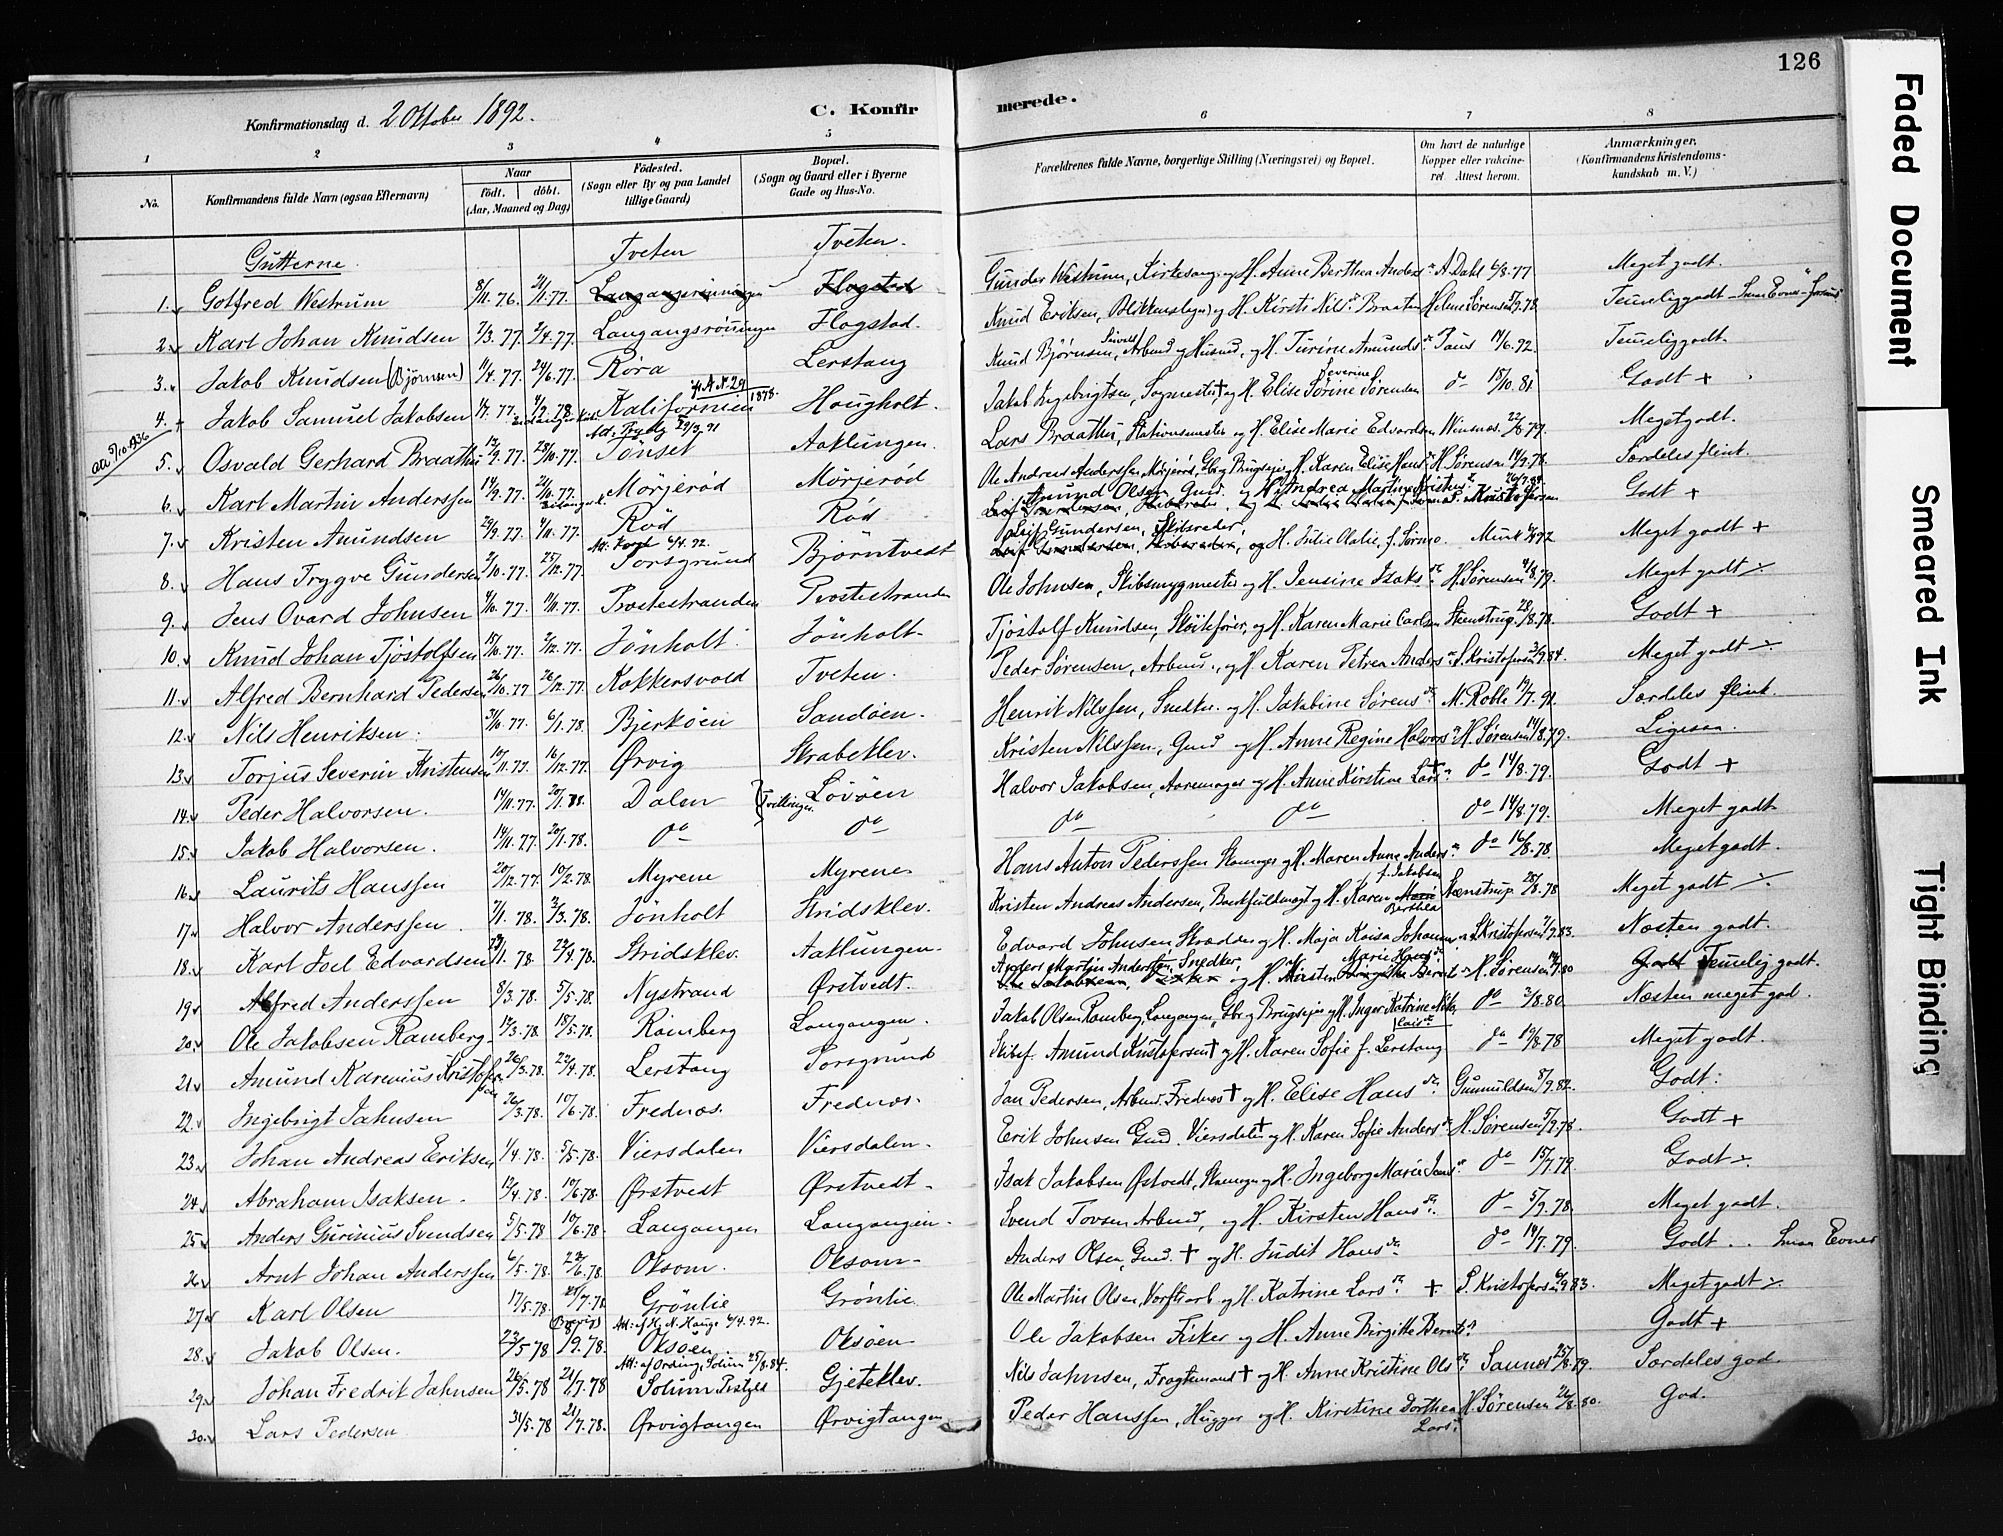 126
Konfirmationsdag d. 2 Oktober 1892.
C. Konfirmerede.
1 2 3 4 5 6 7 8
No.
Konfirmandens fulde Navn (ogsaa Efternavn)
Naar
födt. döbt.
(Aar, Maaned og Dag)
Födested.
(Sogn eller By og paa Landet tillige Gaard)
Bopæl.
(Sogn og Gaard eller i Byerne Gade og Hus-No.
Forældrenes fulde Navne, borgerlige Stilling (Næringsvei) og Bopæl.
Om havt de naturlige Kopper eller vakcineret. Attest herom.
Anmærkninger.
(Konfirmandens Kristendomskundskab m. V.)
Gutterne. Tveten Tveten.
1. Gotfred Westrum 8/11.76. 21/1.77. Langangsrønningen Flogstad Gunder Westrum, Kirkesang. og H. Anne Berthea Anders dr. A. Dahl 6/8.77 Meget godt.
2. Karl Johan Knudsen 7/3.77. 2/4.77. Langangsrønningen Flogstad. Knud Eriksen, Blikkenslager og H. Kirsti Nils dr. Braaten Helme Sørensen 5/9.78 Temeliggodt - Smaa Evner
3. Jakob Knudsen (Bjørnsen) 11/4.77. 24/6.77. Røra Lerstang Knud Bjørnsen, Arbmd og Husmd, og H. Turine Amunds dr. Paus 14/6.92. Temeliggodt.
4. Jakob Samuel Jakobsen 1/7.77. 4/2.78. Kalifornien 1878. Hougholt. Jakob Ingebrigtsen, Sagmester † og H. Elise Severine Sørine Sørensen do 18/10.81 Godt +
Att: Tryg 29/3.91
5. Osvald Gerhard Braathu 12/9.77. 28/10.77. Tønset Aaklungen. Lars Braathu, Stationsmester og H. Elise Marie Edvardsen Winsnes. 22/8.79. Megetgodt.
6. Karl Martin Anderssen 14/9.77. 21/10.77. Mørjerød Mørjerød Ole Andreas Anderssen Mørjerød, Gbr og Brugsejer og H. Karen Elise Hans dr. H. Sørensen 14/9.78. Særdeles flink.
7. Kristen Amundsen 29/9.77. 4/11.77. Rød Rød Amund Olsen, Gmd. og H. Andrea Martine Kristens dr. Kristofersen Godt +
8. Hans Trygve Gundersen 2/10.77. 25/12.77. Porsgrund Bjørntvedt Leif Gundersen, Skibsreder, og H. Julie Olalie, f. Sørmo. Munk Meget godt +
9. Jens Ovard Johnsen 4/10.77. 11/11.77. Prostestranden Prostestranden Ole Johnsen, Skibsbygmester og H. Jensine Isaks dr. H. Sørensen 4/8.79. Meget godt
10. Knud Johan Tjøstolfsen 15/10.77. 2/12.77. Jønholt Jønholt Tjøstolf Knudsen, Skøitefører, og H. Karen Marie Carlsen Steenstrup. 28/8.78. Godt +
11. Alfred Bernhard Pedersen 26/10.77 26/12.77. Kokkersvold Tveten. Peder Sørensen, Arbmd., og H. Karen Petrea Anders dr. S. Kristofersen 3/9.84. Meget godt
12. Nils Henriksen. 31/10.77. 6/1.78. Bjerkøen Sandøen. Henrik Nilssen, Snedker. og H. Jakobine Sørens dr. M. Roble 19/7.92. Særdeles flink.
13. Torjus Severin Kristensen 10/11.77. 16/12.77. Ørvig Skrabeklev. Kristen Nilssen, Gmd og H. Anne Regine Halvors dr. H. Sørensen 14/8.79. Ligesaa.
14. Peder Halvorsen. 14/11.77. 20/1.78. Dalen Tvillinger Løvøen Halvor Jakobsen, Aaremager og H. Anne Kirstine Lars dr. † do 14/8.79. Godt +
15. Jakob Halvorsen. 14/11.77. 20/1.78. do do do do do 14/8.79. Meget godt
16. Laurits Hanssen 20/12.77. 10/2.78. Myrene Myrene Hans Anton Pederssen Skomager og H. Maren Anne Anders dr. do 16/8.78. Meget godt.
17. Halvor Anderssen. 7/1.78. 3/3.78. Jønholt Stridsklev. Kristen Andreas Andersen, Bankfuldmægt. og H. Karen Marie Berthea f. Jakobsen Steenstrup 28/8.78 Meget godt
18. Karl Joel Edvardsen 23/1.78. 22/4.78. Stridsklev. Aaklungen. Edvard Johnsen Skrædder og H. Maja Kaisa Johannes dr. S. Kristofersen 7/9.83. Næsten godt.
19. Alfred Anderssen 8/3.78. 5/5.78. Nystrand Ørstvedt. Anders Martin Andersen, Snedker, og H. Kirsten Marie Hans dr. H. Sørensen Godt Temelig godt.
20. Ole Jakobsen Ramberg 12/3.78. 18/5.78. Ramberg Langangen. Jakob Olsen Ramberg, Langangen, Gbr og Brugsejer og H. Inger Katrine Nikolais dr. do 3/8.80. Næsten meget god.
21. Amund Karenius Kristofersen 26/3.78. 22/4.78. Lerstang Porsgrund Skibsf. Amund Kristofersen † og H. Karen Sofie f. Lerstang do 10/8.78 Meget godt.
22. Ingebrigt Jahnsen 26/3.78. 10/6.78. Frednæs. Frednæs. Jan Pedersen, Arbmd. Frednæs † og H. Elise Hans dr. Gunnuldsen 8/9.82. Godt.
23. Johan Andreas Eriksen 1/4.78. 5/5.78. Viersdalen Viersdalen. Erik Johnsen Gmd. Viersdalen † og H. Karen Sofie Anders dr. H. Sørensen 5/9.78. Godt +
24. Abraham Isaksen. 12/4.78. 10/6.78. Ørstvedt Ørstvedt. Isak Jakobsen Østvedt, Skomager og H. Ingeborg Marie Jens dr. do 15/7.79. Godt
25. Anders Gurinius Svendsen 5/5.78 10/6.78. Langangen Langangen. Svend Tovsen Arbmd, og H. Kirsten Hans dr. do 5/9.78. Meget godt.
26. Arnt Johan Anderssen 6/5.78. 23/6.78. Oksom. Oksom. Anders Olsen, Gmd. † og H. Judit Hans dr. do 14/7.79. Godt. Smaa Evner
27. Karl Olsen 17/5.78. 21/7.78 Grönlie Grönlie Ole Martin Olsen, Værftsarb og H. Katrine Lars dr. † S. Kristofersen 6/9.83. Meget godt
Att: af H. N. Hauge 4/4.92.
28. Jakob Olsen. 23/5.78 9.78. Oksøen Oksøen Ole Jakobsen Fisker og H. Anne Birgitte Bernts dr. Godt +
Att: af Ording, Solum 25/8.84.
29. Johan Fredrik Jahnsen 26/5.78 21/7.78 Solum Gjeteklev. Nils Jahnsen, Fragtemand † og H. Anne Kristine Ols dr. Saunes 25/8.79. Særdeles god.
30. Lars Pedersen 31/5.78 21/7.78. Ørvigtangen Ørvigtangen Peder Hanssen, Hugger og H. Kirstine Dorthea Lars dr. H. Sørensen 26/8.80. God.
Faded Document
Smeared Ink
Tight Binding